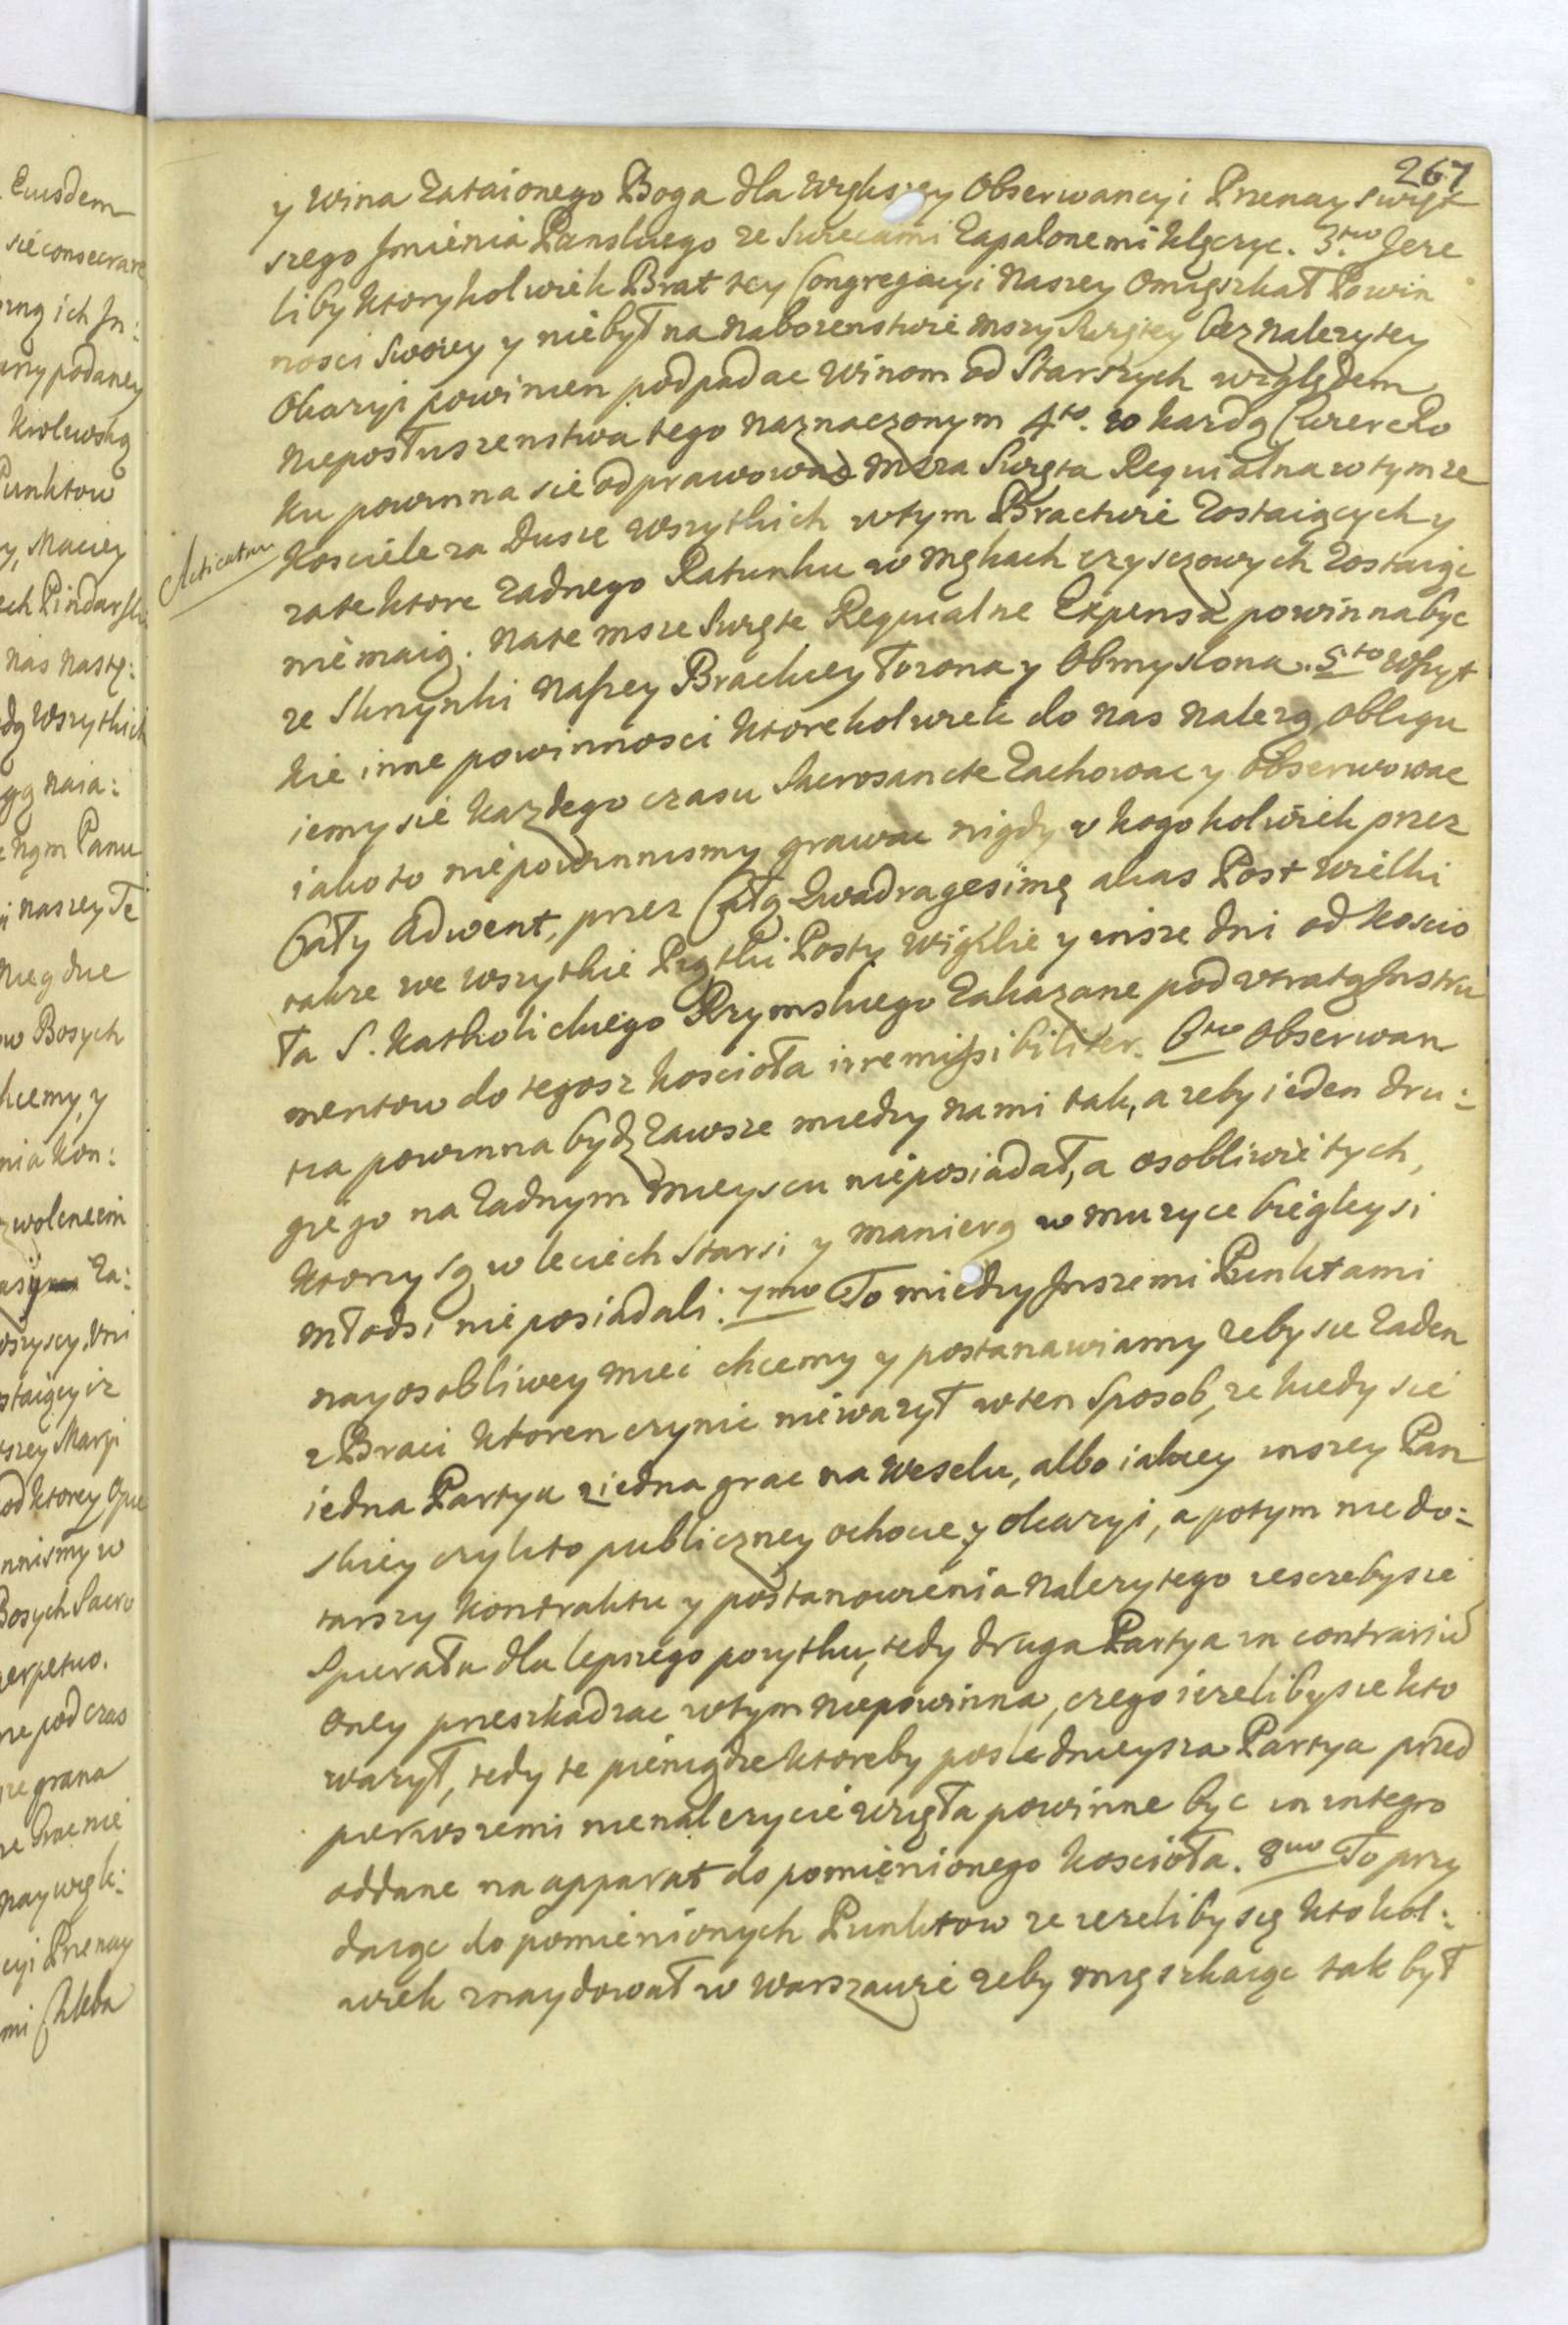 267
y wina zataionego Boga dla większey Obserwancyi Przenayswięt
szego Jmienia Panskiego ze swiecami zapalonemi klęczyc. 3tio Jeze
liby ktorykolwiek Brat tey Congregacyi naszey omięszkał Powin
nosci swoiey y niebył na nabozenstwie mszy swiętey bez nalezytey
Okazyi powinien podpadac winom od Starszych względem
nieposłuszenstwa tego naznaczonym 4to. w kazdą Cwierc Ro
ku powinna sie odprawowac msza Swięta Requialna w tymze
Kosciele za Dusze wszytkich w tym Bractwie zostaiących y
Acticatum
zate ktore zadnego Ratunku w mękach czysczowych zostaiąc
nie maią. na te msze Swięte Requialne Expensa powinna byc
ze Skrzynki naszey Brackiey łozona y obmyslona. 5to wszyt
kie inne powinnosci ktorekolwiek do nas nalezą obligu
iemy sie kazdego czasu Sacrosancte zachowac y obserwowac
iako to niepowinnismy grawac nigdy v kogokolwiek przez
Cały Adwent, przez Całą Qwadragesimę alias Post wielki
takze we wszytkie Piątki Posty Wigilie y insze dni od koscio
ła S. Katholickiego Rzymskiego zakazane pod vtratą Jnstru
mentow do tegosz koscioła irremissibiliter. 6to Obserwan
tia powinna bydz zawsze miedzy nami tak, a zeby ieden dru:
giego na zadnym mieyscu nieposiadał, a osobliwie tych,
ktorzy są w leciech starsi y manierą w muzyce biegleysi
młodsi nie posiadali. 7mo To miedzy Jnszemi Punktami
nayosobliwey miec chcemy y postanawiamy zeby sie zaden
z Braci ktoren czynic niewazył w ten sposob, ze kiedy sie
iedna Partya ziedna grac na weselu, albo iakiey inszey Pan
skiey czykto publiczney ochocie y okazyi, a potym nie do:
tarszy kontraktu y postanowienia nalezytego ieszczeby sie
spierała dla lepszego pozytku, tedy druga Partya in contrarium
oney przeszkadzac w tym niepowinna, czego iezeliby sie kto
wazył, tedy te pieniądze ktoreby posledniejsza Partya przed
pierwszemi nienalezycie wzięła powinne byc in integro
oddane na apparat do pomienionego koscioła. 8vo To przy
daiąc do pomienionych Punktow ze iezeliby się ktokol:
wiek znaydował w Warszawie zeby mięszkaiąc tak był